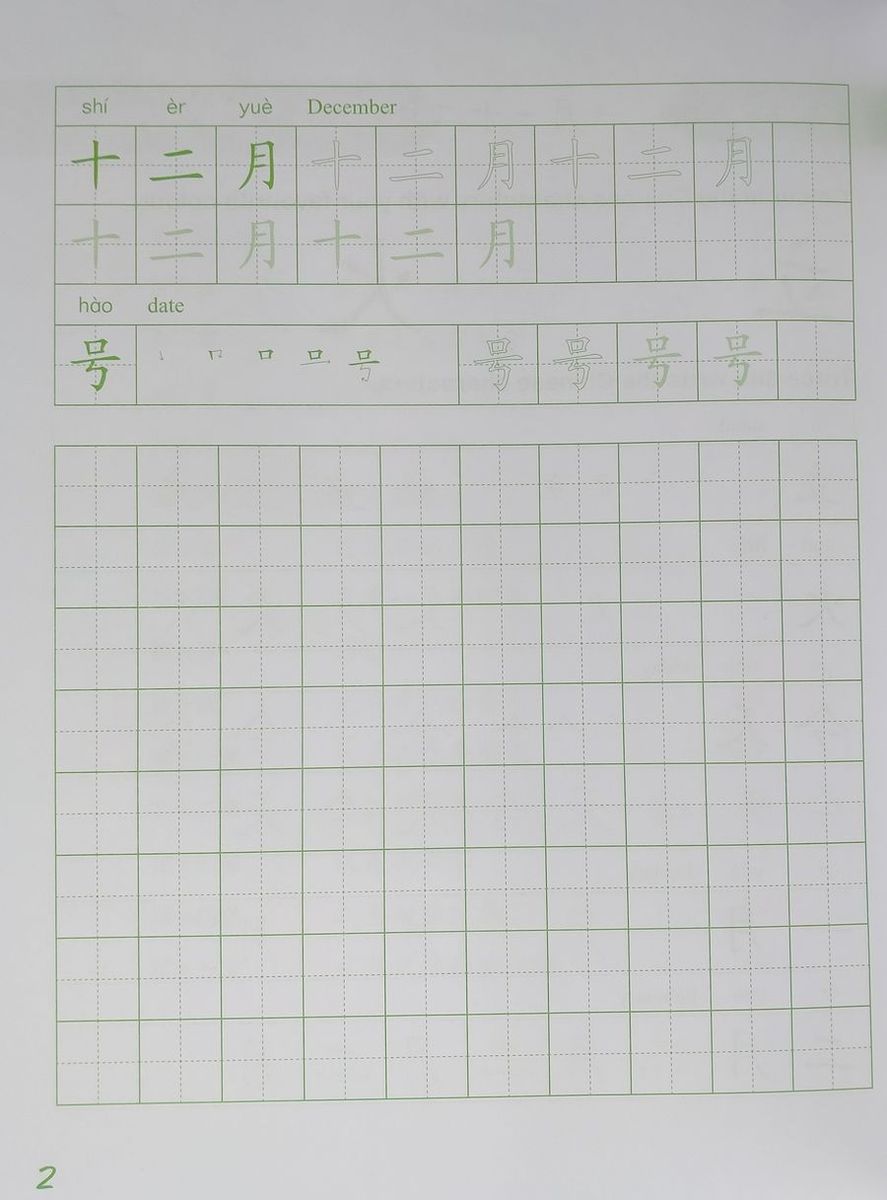 shí èr yuè December
十 二 月 十 二 月 十 二 月
十 二 月 十 二 月
hào date
号 号 号 号 号
2